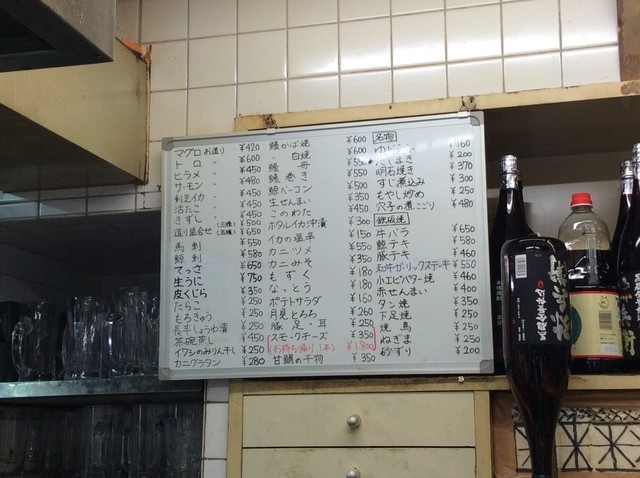 マグロお造り ¥420
トロ 〃 ¥600
ヒラメ 〃 ¥450
サーモン 〃 ¥480
剣先イカ 〃 ¥450
活たこ 〃 ¥450
きずし 〃 ¥450
造り盛合せ (三種) ¥500
(五種) ¥650
馬刺 ¥550
鯨刺 ¥580
てっさ ¥650
生うに ¥750
皮くじら ¥350
たらこ
もろきゅう
長芋しょうゆ漬
茶碗蒸し
イワシのみりん干し ¥250
カニグラタン ¥280
鰻かば焼 ¥600
〃 白焼 ¥600
鰻 丼
鰻巻き ¥550
鯨ベーコン
生せんまい
このわた
ホタルイカ沖漬 ¥300
イカの塩辛 ¥150
カニツメ
カニみそ
もずく
なっとう
ポテトサラダ
月見とろろ
豚足・耳 ¥250
スモークチーズ ¥350
(お持ち帰り1本) ¥1,800
甘鯛の干物 ¥350
名物
¥160
だしまき ¥200
明石焼き ¥370
すじ煮込み ¥300
もやし炒め ¥250
穴子の煮こごり ¥480
鉄板焼
牛バラ ¥650
鯨テキ ¥580
豚テキ ¥460
和牛ガーリックステーキ ¥550
小エビバター焼 ¥460
赤せんまい ¥400
タン焼 ¥350
下足焼 ¥350
焼鳥 ¥250
ねぎま ¥250
砂ずり ¥200